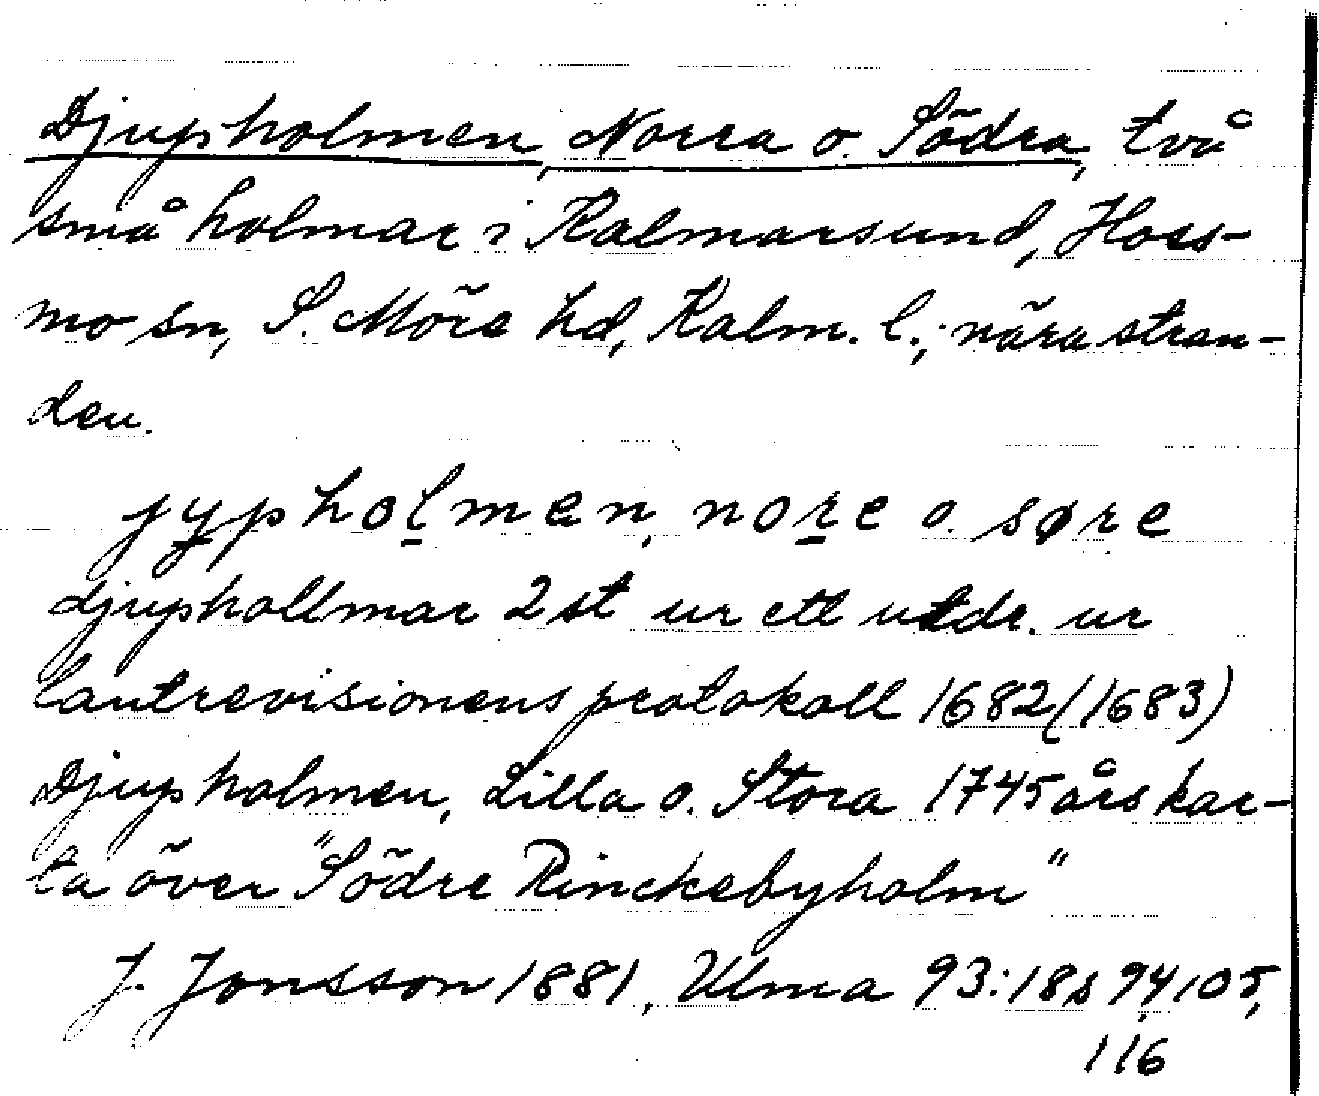 Djupholmen, Norra o. Södra, två
små holmar i Kalmarsund, Hoss-
mo sn, S. Möre hd, Kalm. l.; nära stran-
den.
jypholmen, nore o. søre
djuphollmar 2 st ur ett utdr. ur
lantrevisionens protokoll 1682 (1683)
Djupholmen, Lilla o. Stora 1745 års kar-
ta över "Södre Rinckebyholm"
J. Jonsson 1881, Ulma 93:18 s 94, 105,
116